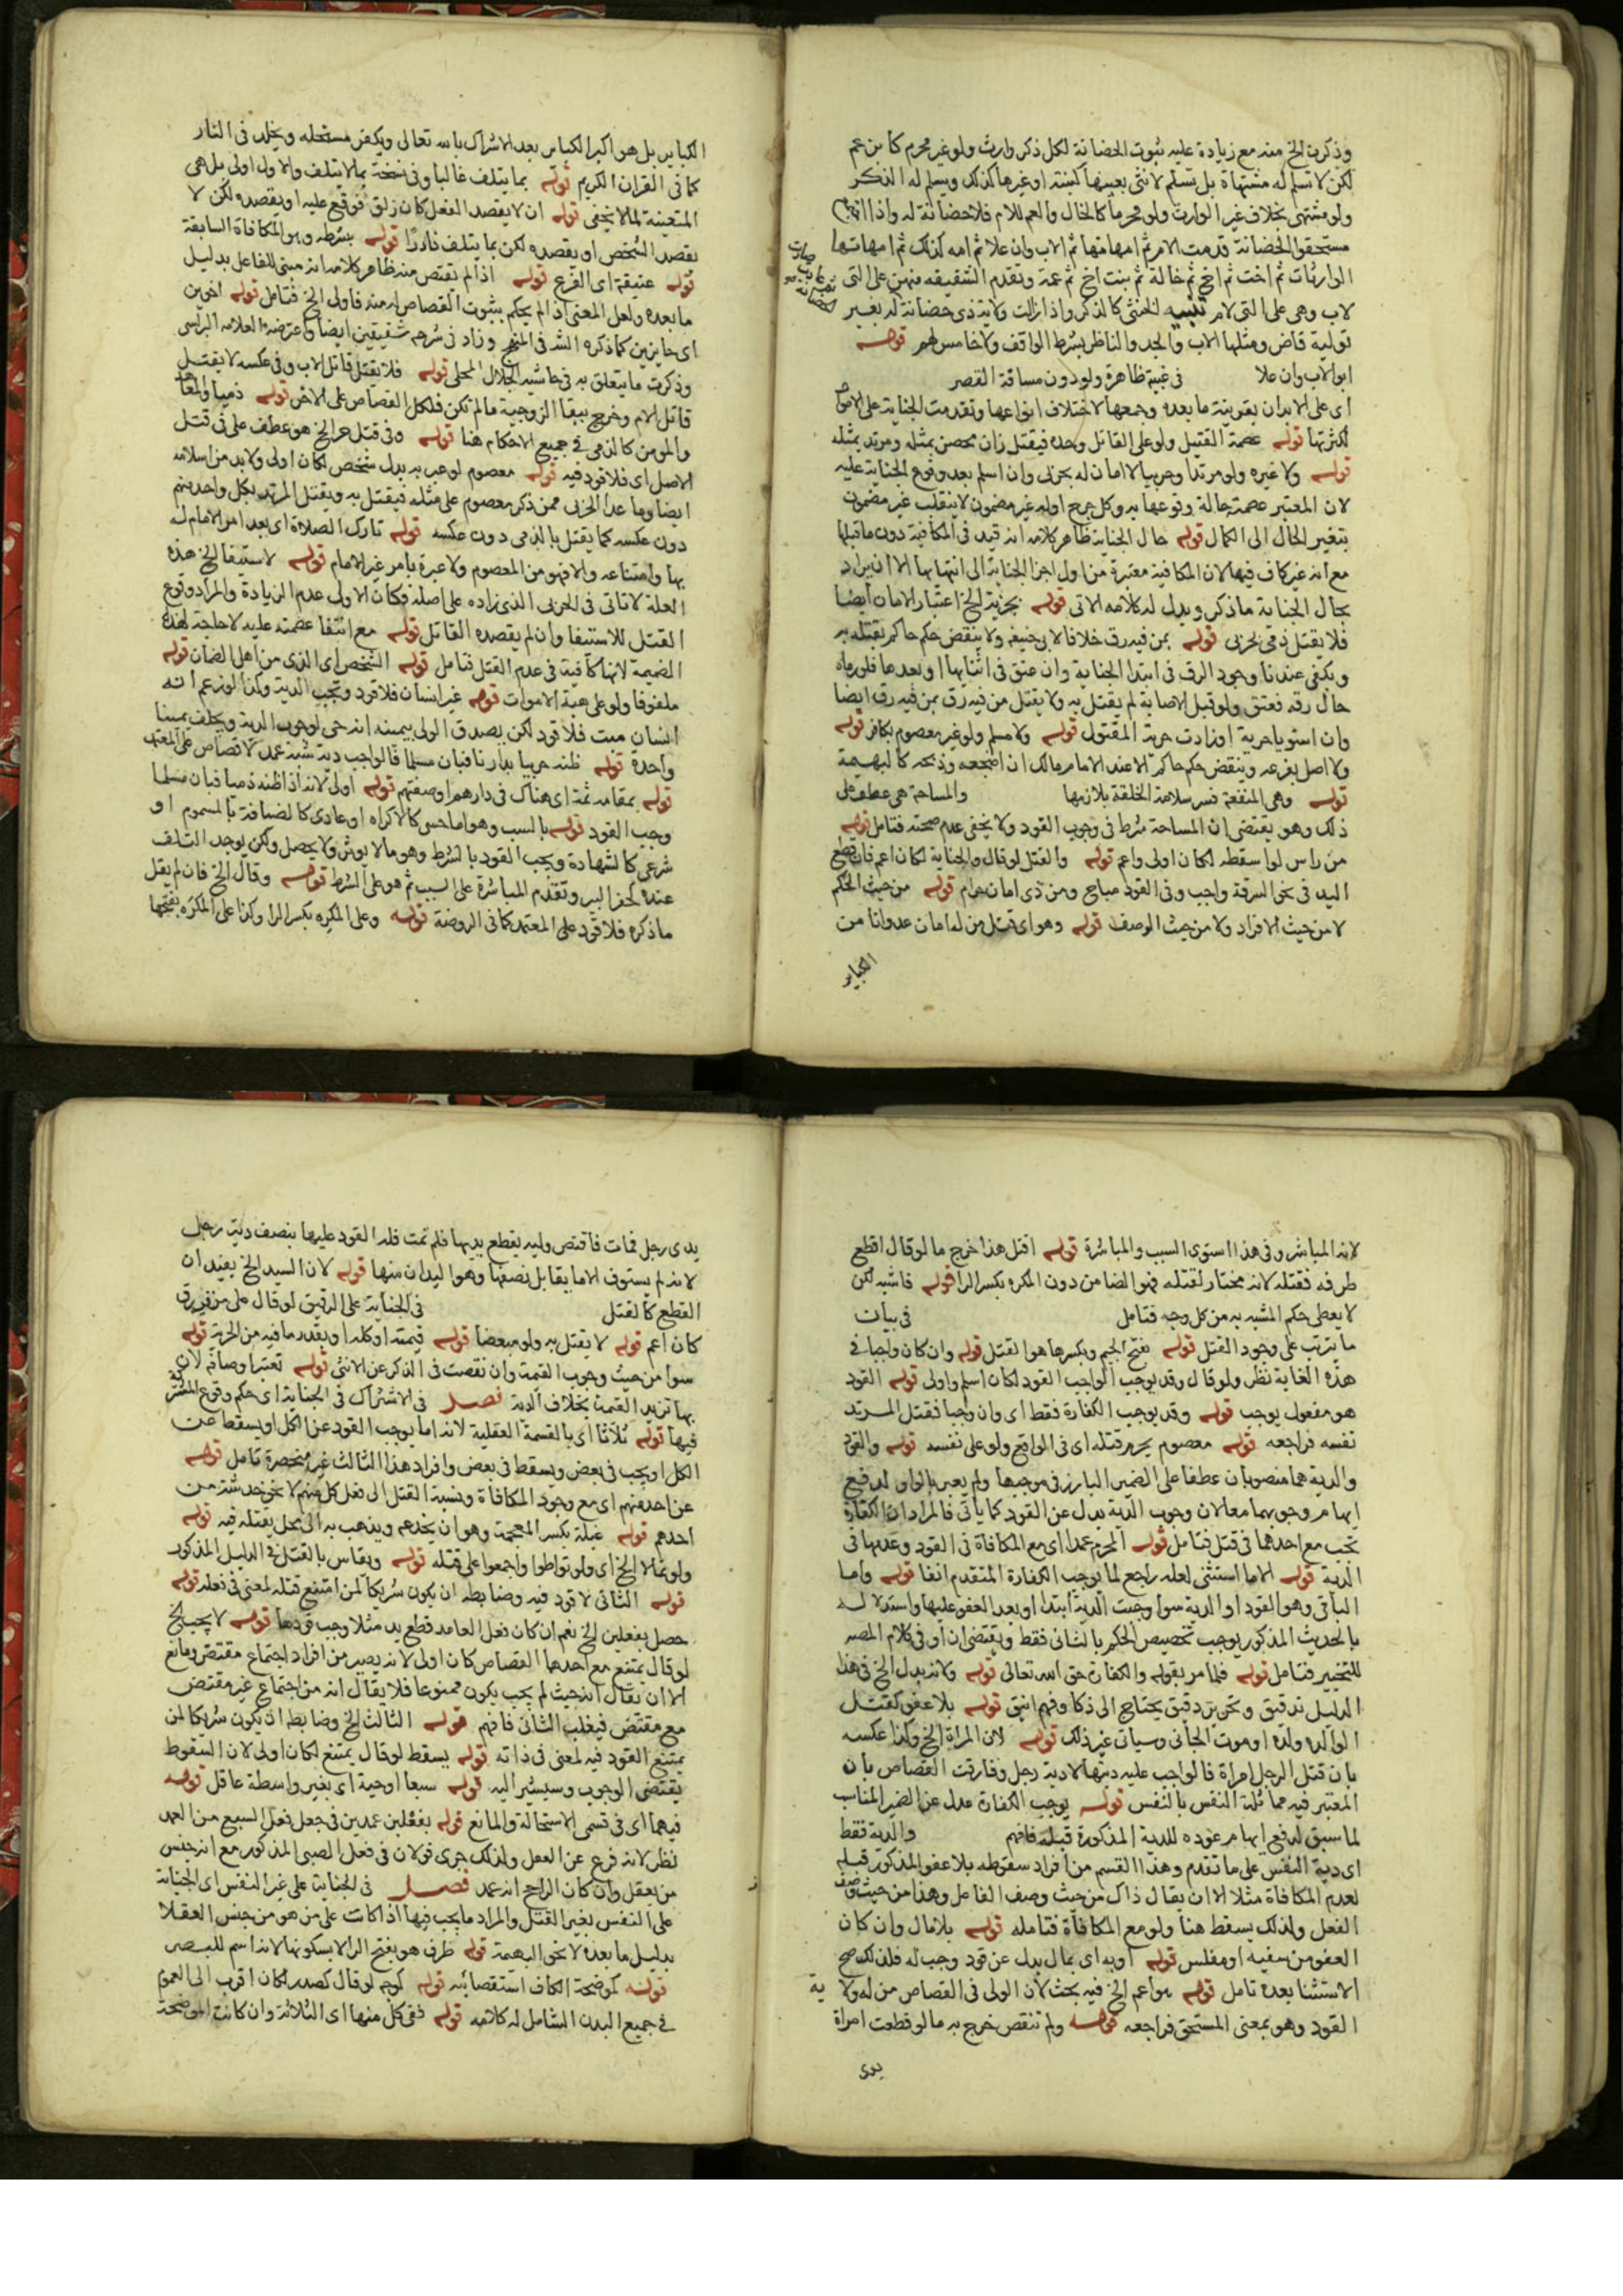 وذكرت الخ منه مع زيادة عليه ثبوت الحضانة لكل ذكر وارث ولو غير محرم كابن عم
لكن لا تسلم له مشتهاة بل تسلم لانثى يعينها كبنته او غيرها كذلك ويسلم له الذكر
ولو مشتهى بخلاف غير الوارث ولو محرما كالخال والعم للام فلا حضانة له واذا
مستحقوا الحضانة قدمت الام ثم امهاتها ثم الاب وان علا ثم امه كذلك ثم امهاتها
الوارثات ثم اخت ثم اخ ثم خالة ثم بنت اخ ثم عمة وتقدم الشقيقه منهن على التى
لاب وهى على التى لام تنبيه الخنثى كالذكر واذا زالت ولاية ذى حضانة له بغير
تولية قاض ومثلها الاب والجد والناظر بشرط الواقف ولا خامس لهم قوله
ابو الاب وان علا فى غيبة ظاهرة ولو دون مسافة القصر
اى على الابدان بقرينة ما بعده وجمعها لاختلاف انواعها وتقدمت الجناية على الاموال
لكثرتها قوله عصمة القتيل ولو على القاتل وحده فيقتل زان محصن بمثله ومرتد بمثله
قوله ولا غيره ولو مرتدا وحربيا لا امان له بحربى وان اسلم بعد وقوع الجناية عليه
لان المعتبر عصمة حالة وقوعها به وكل جرح اوله غير مضمون لا ينقلب غير مضمون
بتغير الحال الى الكمال قوله حال الجناية ظاهر كلامه انه قيد فى المكافية دون ما قبلها
مع انه غير كاف فيها لان المكافية معتبرة من اول اجزا الجناية الى انتهائها الا ان يراد
بحال الجناية ما ذكر ويدل له كلامه الاتى قوله بجزية الخ اعتبار الامان ايضا
فلا يقتل ذمى بحربى قوله بمن فيه رق خلافا لابى حنيفه ولا ينقض حكم حاكم بقتله به
ويكفى عندنا وجود الرق فى ابتدا الجناية وان عتق فى اثنايها او بعدها فلو رماه
حال رقه فعتق ولو قبل الاصابة لم يقتل به ولا يقتل من فيه رق بمن فيه رق ايضا
وان استويا حرية او زادت حرية المقتول قوله ولا مسلم ولو غير معصوم بكافر قوله
ولا اصل بفرعه وينقض حكم حاكم الا عند الامام مالك ان اضجعه وذبحه كالبهيمة
قوله وهى المنفعة فسر سلامة الخلقة بلازمها والمساحة هى عطف على
ذلك وهو يقتضى ان المساحة شرط فى وجوب القود ولا يخفى عدم صحته فتامل قوله
من راس لو اسقطه لكان اولى واعم قوله والقتل لو قال والجناية لكان اعم فان قطع
اليد فى نحو السرقة واجب وفى القود مباح ومن ذى امان حرام قوله من حيث الحكم
لا من حيث الافراد ولا من حيث الوصف قوله وهو اى قتل من له امان عدوانا من
الكباير
الكباير بل هو اكبر الكباير بعد الاشراك بالله تعالى ويكفر مستحله ويخلد فى النار
كما فى القران الكريم قوله بما يتلف غالبا وفى نسخة بما لا يتلف والاول اولى بل هى
المتعينة لما لا يخفى قوله ان لا يقصد الفعل كان زلق فوقع عليه او يقصده ولكن لا
يقصد الشخص او يقصده لكن بما يتلف نادرا قوله بشرطه وهو المكافاة السابقة
قوله عتيقة اى الفرع قوله اذا لم يقتص منه ظاهر كلامه انه مبنى للفاعل بدليل
ما بعده ولعل المعنى اذا لم يحكم بثبوت القصاص له منه فاولى الخ فتامل قوله اخوين
اى حايزين كما ذكره الشـ فى المنهج وزاد فى شرحه شقيقين ايضا واعترضه العلامه البرلسى
وذكرت ما يتعلق به فى حاشية الجلال المحلى قوله فلا يقتل قاتل الاب وفى عكسه لا يقتل
قاتل الام وخرج ببقا الزوجية ما لم تكن فلكل القصاص على الاخر قوله ذميا والمعاهد
والمومن كالذمى فى جميع الاحكام هنا قوله وفى قتل حر الخ هو عطف على فى قتل
الاصل اى فلا قود فيه قوله معصوم لو عبر به بدل شخص لكان اولى ولا بد من اسلامه
ايضا وما عدا الحربى ممن ذكر معصوم على مثله فيقتل به ويقتل المرتد بكل واحد منهم
دون عكسه كما يقتل بالذمى دون عكسه قوله تارك الصلاة اى بعد امر الامام له
بها وامتناعه والا فهو من المعصوم ولا عبرة بامر غير الامام قوله لاستيفا الخ هذه
العلة لا تاتى فى الحربى الذى زاده على اصله فكان الاولى عدم الزيادة والمراد وقوع
القتل للاستيفا وان لم يقصده القاتل قوله مع انتفا عصمته عليه لا حاجة لهذه
الضميمة لانها كافية فى عدم القتل فتامل قوله الشخص اى الذى من اهل الضمان قوله
ملفوفا ولو على هيئة الاموات قوله غير انسان فلا قود وتجب الدية وكذا لو زعم انه
انسان ميت فلا قود لكن يصدق الولى بيمينه انه حى لوجوب الدية ويحلف يمينا
واحدة قوله ظنه حربيا بدارنا فبان مسلما فالواجب دية شبه عمد لا قصاص على المعتمد
قوله بمقامه ثمة اى هناك فى دارهم او صفتهم قوله اولى لانه اذا ظنه ذميا فبان مسلما
وجب القود قوله بالسبب وهو اما حسى كالاكراه او عادى كالضيافة بالمسموم او
شرعى كالشهادة ويجب القود بالشرط وهو ما لا يوثر ولا يحصل ولكن يوجد التلف
عنده كحفر البير وتقدم المباشرة على السبب ثم هو على الشرط قوله وقال الخ فان لم يقل
ما ذكره فلا قود على المعتمد كما فى الروضة قوله وعلى المكره بكسر الرا وكذا على المكره بفتحها
لانه المباشر وفى هذا استوى السبب والمباشرة قوله اقتل هذا خرج ما لو قال اقطع
طرفه فقتله لانه مختار لقتله فهو الضامن دون المكره بكسر الرا قوله فاشبه لكن
لا يعطى حكم المشبه به من كل وجه فتامل فى بيان
ما يترتب على وجود القتل قوله بفتح الجيم وبكسرها هو القتل قوله وان كان واجبا فى
هذه الغاية نظر ولو قال وقد يوجب الواجب القود لكان اسلم واولى قوله القود
هو مفعول يوجب قوله وقد يوجب الكفارة فقط اى وان وجبا فقتل المرتد
نفسه فراجعه قوله معصوم يحرم قتله اى فى الواقع ولو على نفسه قوله والقود
والدية هما منصوبان عطفا على الضمير البارز فى موجبها ولم يعبر بالواو لدفع
ايهام وجوبهما معا لان وجوب الدية بدل عن القود كما ياتى فالمراد ان الكفارة
تجب مع احدهما فى قتل فتامل قوله المحرم عمدا اى مع المكافاة فى القود وعدمها فى
الدية قوله الا ما استثنى لعله راجع لما يوجب الكفارة المتقدم انفا قوله واما
الباقى وهو القود او الدية سوا وجبت الدية ابتدا او بعد العفو عليها واستدلاله
بالحديث المذكور يوجب تخصيص الحكم بالثانى فقط ويقتضى ان او فى كلام المصـ
للتخيير فتامل قوله فلما مر بقوله والكفارة حق الله تعالى قوله ولانه بدل الخ فى هذا
الدليل تدقيق وتحرير دقيق يحتاج الى ذكا وفهم انيق قوله بلا عفو كقتل
الوالد ولده او موت الجانى وسياتى غير ذلك قوله لان المراة الخ وكذا عكسه
بان قتل الرجل امراة فالواجب عليه ديتها لا دية رجل وفارقت القصاص بان
المعتبر فيه مماثلة النفس بالنفس قوله يوجب الكفارة عدل عن الضمير المناسب
لما سبق لدفع ايهام عوده للدية المذكورة قبله فافهم والدية فقط
اى دية النفس على ما تقدم وهذا القسم من افراد سقوطه بلا عفو المذكور قبله
لعدم المكافاة مثلا الا ان يقال ذاك من حيث وصف الفاعل وهذا من حيث وصف
الفعل ولذلك يسقط هنا ولو مع المكافاة فتامله قوله بلا مال وان كان
العفو من سفيه او مفلس قوله او به اى بمال بدل عن قود وجب له فلذلك صح
الاستثنا بعده تامل قوله هو اعم الخ فيه بحث لان الولى فى القصاص من له ولاية
القود وهو بمعنى المستحق فراجعه قوله ولم تنقص خرج به ما لو قطعت امراة
يدى
يدى رجل فمات فاقتص وليه بقطع يديها فلم تمت فله القود عليها بنصف دية رجل
لانه لم يستوف الا ما يقابل نصفها وهو اليدان منها قوله لان السيد الخ يفيد ان
القطع كالقتل فى الجناية على الرقيق لو قال على من فيه رق
كان اعم قوله لا يقتل به ولو مبعضا قوله قيمته او كلها او بقدر ما فيه من الحرية قوله
سوا من حيث وجوب القيمة وان نقصت فى الذكر عن الانثى قوله تعتبر اوصافه لان
بها تزيد القيمة بخلاف الدية فصل فى الاشتراك فى الجناية اى حكم وقوع
فيها قوله ثلاثا اى بالقسمة العقلية لانه اما يوجب القود عن الكل او يسقط عن
الكل او يجب فى بعض ويسقط فى بعض وافراد هذا الثالث غير منحصرة تامل قوله
عن احد منهم اى مع وجود المكافاة ونسبة القتل الى فعل كل منهم لا نحو خدشة من
احدهم قوله غيلة بكسر المعجمة وهو ان يخدعه ويذهب به الى محل يقتله فيه قوله
ولو تمالا الخ اى ولو تواطوا واجمعوا على قتله قوله ويقاس بالقتل فى الدليل المذكور
قوله الثانى لا قود فيه وضابطه ان يكون شريكا لمن امتنع قتله لمعنى فى فعله قوله
حصل بفعلين الخ نعم ان كان فعل العامد قطع يد مثلا وجب قودها قوله لا يجب الخ
لو قال يمتنع مع احدهما القصاص كان اولى لانه يصير من افراد اجتماع مقتض ومانع
الا ان يقال انه حيث لم يجب يكون ممنوعا فلا يقال انه من اجتماع غير مقتض
مع مقتض فيغلب الثانى فافهم قوله الثالث الخ وضابطه ان يكون شريكا لمن
يمتنع القود فيه لمعنى فى ذاته قوله يسقط لو قال يمتنع لكان اولى لان السقوط
يقتضى الوجوب وسيشير اليه قوله سبعا او حية اى بغير واسطة عاقل قوله
فيهما اى فى قسمى الاستحالة والمانع قوله بفعلين عمدين فى جعل فعل السبع من العمد
نظر لانه فرع عن العقل ولذلك جرى قولان فى فعل الصبى المذكور مع انه جنس
من يعقل وان كان الراجح انه عمد فصل فى الجناية على غير النفس اى الجناية
على النفس بغير القتل والمراد ما يجب فيها اذا كانت على من هو من جنس العقلا
بدليل ما بعده لا نحو البهيمة قوله طرف هو بفتح الرا لا بسكونها لانه اسم للبصر
قوله كموضحة الكاف استقصائيه قوله كوجه لو قال كصدر لكان اقرب الى العموم
فى جميع البدن الشامل له كلامه قوله ففى كل منها اى الثلاثة وان كانت الموضحة